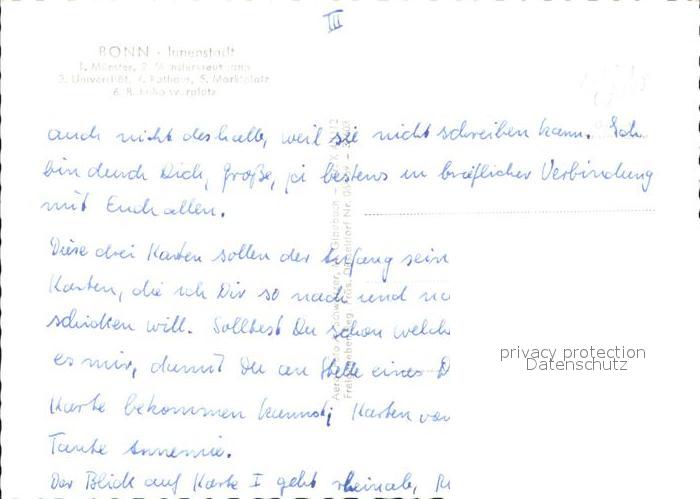 III
BONN - Innenstadt
1. Münster, 2. Münsterkreuzgang
3. Universität, 4. Rathaus, 5. Marktplatz
6. B
auch nicht deshalb, weil sie nicht schreiben kann. Ich
bin durch Dich, große, ja bestens in brieflicher Verbindung
mit Euch allen.
Diese drei Karten sollen der Anfang sein
Karten, die ich Dir so nach und na
schicken will. Solltest Du schon welch
es mir, damit Du an Stelle eines D
Karte bekommen kannst; Karten von
Tante Annemie.
Der Blick auf Karte I geht rheinab,
privacy protection
Datenschutz